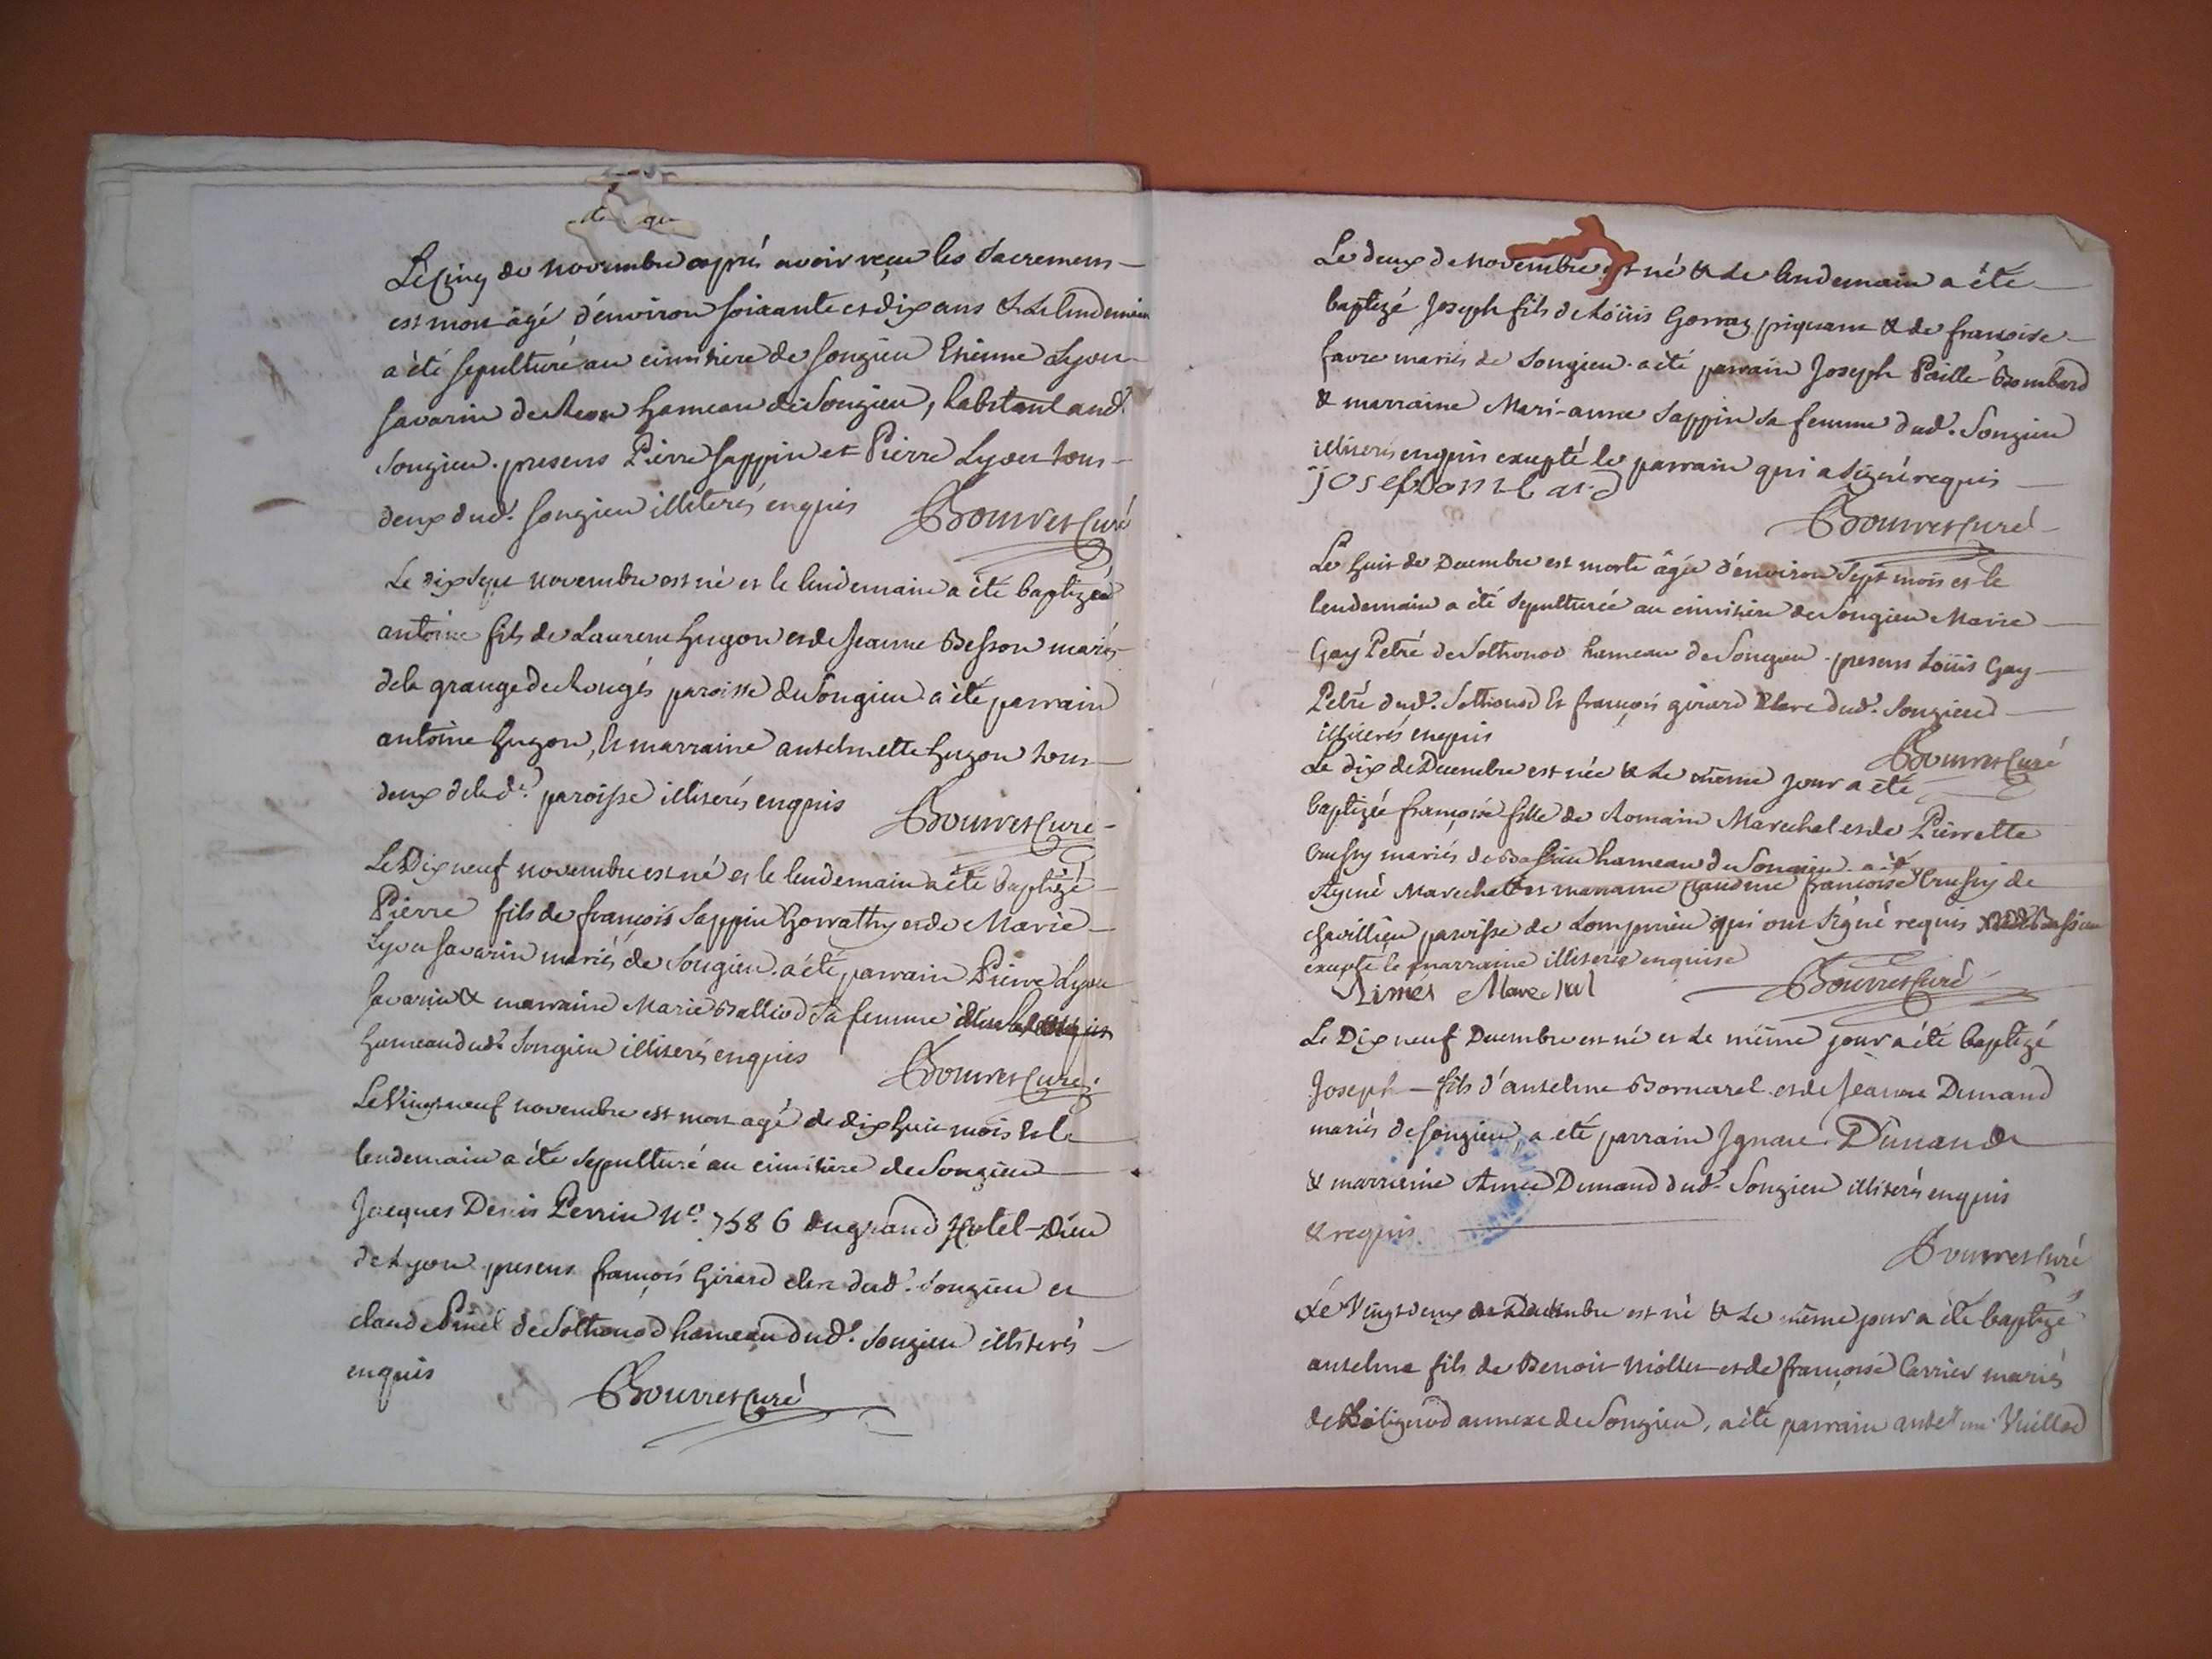 Le Cinq de novembre après avoir reçu les sacremens
est mort âgé d'environ soixante et dix ans & le lendemain
a été sepulturé au cimitiere de songieu Etienne Lyon
savarin de hameau de Songieu, habitant aud.
songieu. presens Pierre sappin et Pierre Lyon tous
deux dud. songieu illiterés enquis Bouvret Curé
Le dix sept novembre est né et le lendemain a été baptizé
antoine fils de Laurent hugon et de Jeanne Besson mariés
de la grange de Rongés paroisse de Songieu a été parrain
antoine hugon, et marraine anthelmette hugon tous
deux de la de. paroisse illiterés enquis Bouvret Curé
Le Dix neuf novembre est né et le lendemain a été baptizé
Pierre fils de françois Sappin Gorrathy et de Marie
Lyon savarin mariés de Songieu. a été parrain Pierre Lyon
savarin & marraine Marie Balliod sa femme
hameau dud. Songieu illiterés enquis Bouvret Curé
Le Vingt neuf novembre est mort agé de dix huit mois et le
lendemain a été sepulturé au cimitiere de Songieu
Jacques Denis Perrin No. 7586 du grand Hotel-Dieu
de Lyon presens françois Girard clerc dud. Songieu et
claude de Sothonod hameau dud. Songieu illiterés
enquis Bouvret Curé
Le deux de Novembre est né & le lendemain a été
baptizé Joseph fils de Loüis Gorraz & de francoise
favre mariés de Songieu. a été parrain Joseph Paille-Bombard
& marraine Mari-anne Sappin sa femme dud. Songieu
illiterés enquis excepté le parrain qui a signé requis
josep bombard
Bouvret Curé
Le huit de Decembre est morte âgée d'environ sept mois et le
lendemain a été sepulturée au cimitiere de Songieu Marie
Gay Petré de Sothonod hameau de Songieu. presens Loüis Gay
Petré dud. Sothonod et françois girard clerc dud. Songieu
illiterés enquis
Bouvret Curé
Le dix de Decembre est née & le même jour a été
baptizée françoise fille de Romain Marechal et de Pierrette
Crussy mariés de Bassieu hameau de Songieu a été
Aymé Marechal et marraine Claudine françoise Crussy de
chavillieu paroisse de Lompnieu qui ont signé requis
excepté la marraine illiterée enquise
Aimés Marechal Bouvret Curé
Le Dix neuf Decembre est né et le même jour a été baptizé
Joseph fils d'antelme Bornarel et de Jeanne Dumand
mariés de songieu a été parrain Ignace Dumand
& marraine Aimée Dumand dud. Songieu illiterés enquis
& requis
Bouvret Curé
Le Vingt deux de Decembre est né & le même jour a été baptizé
antelme fils de Benoit Miollet et de françoise Carrier mariés
de Boligniod annexe de Songieu, a été parrain antelme Vuillod